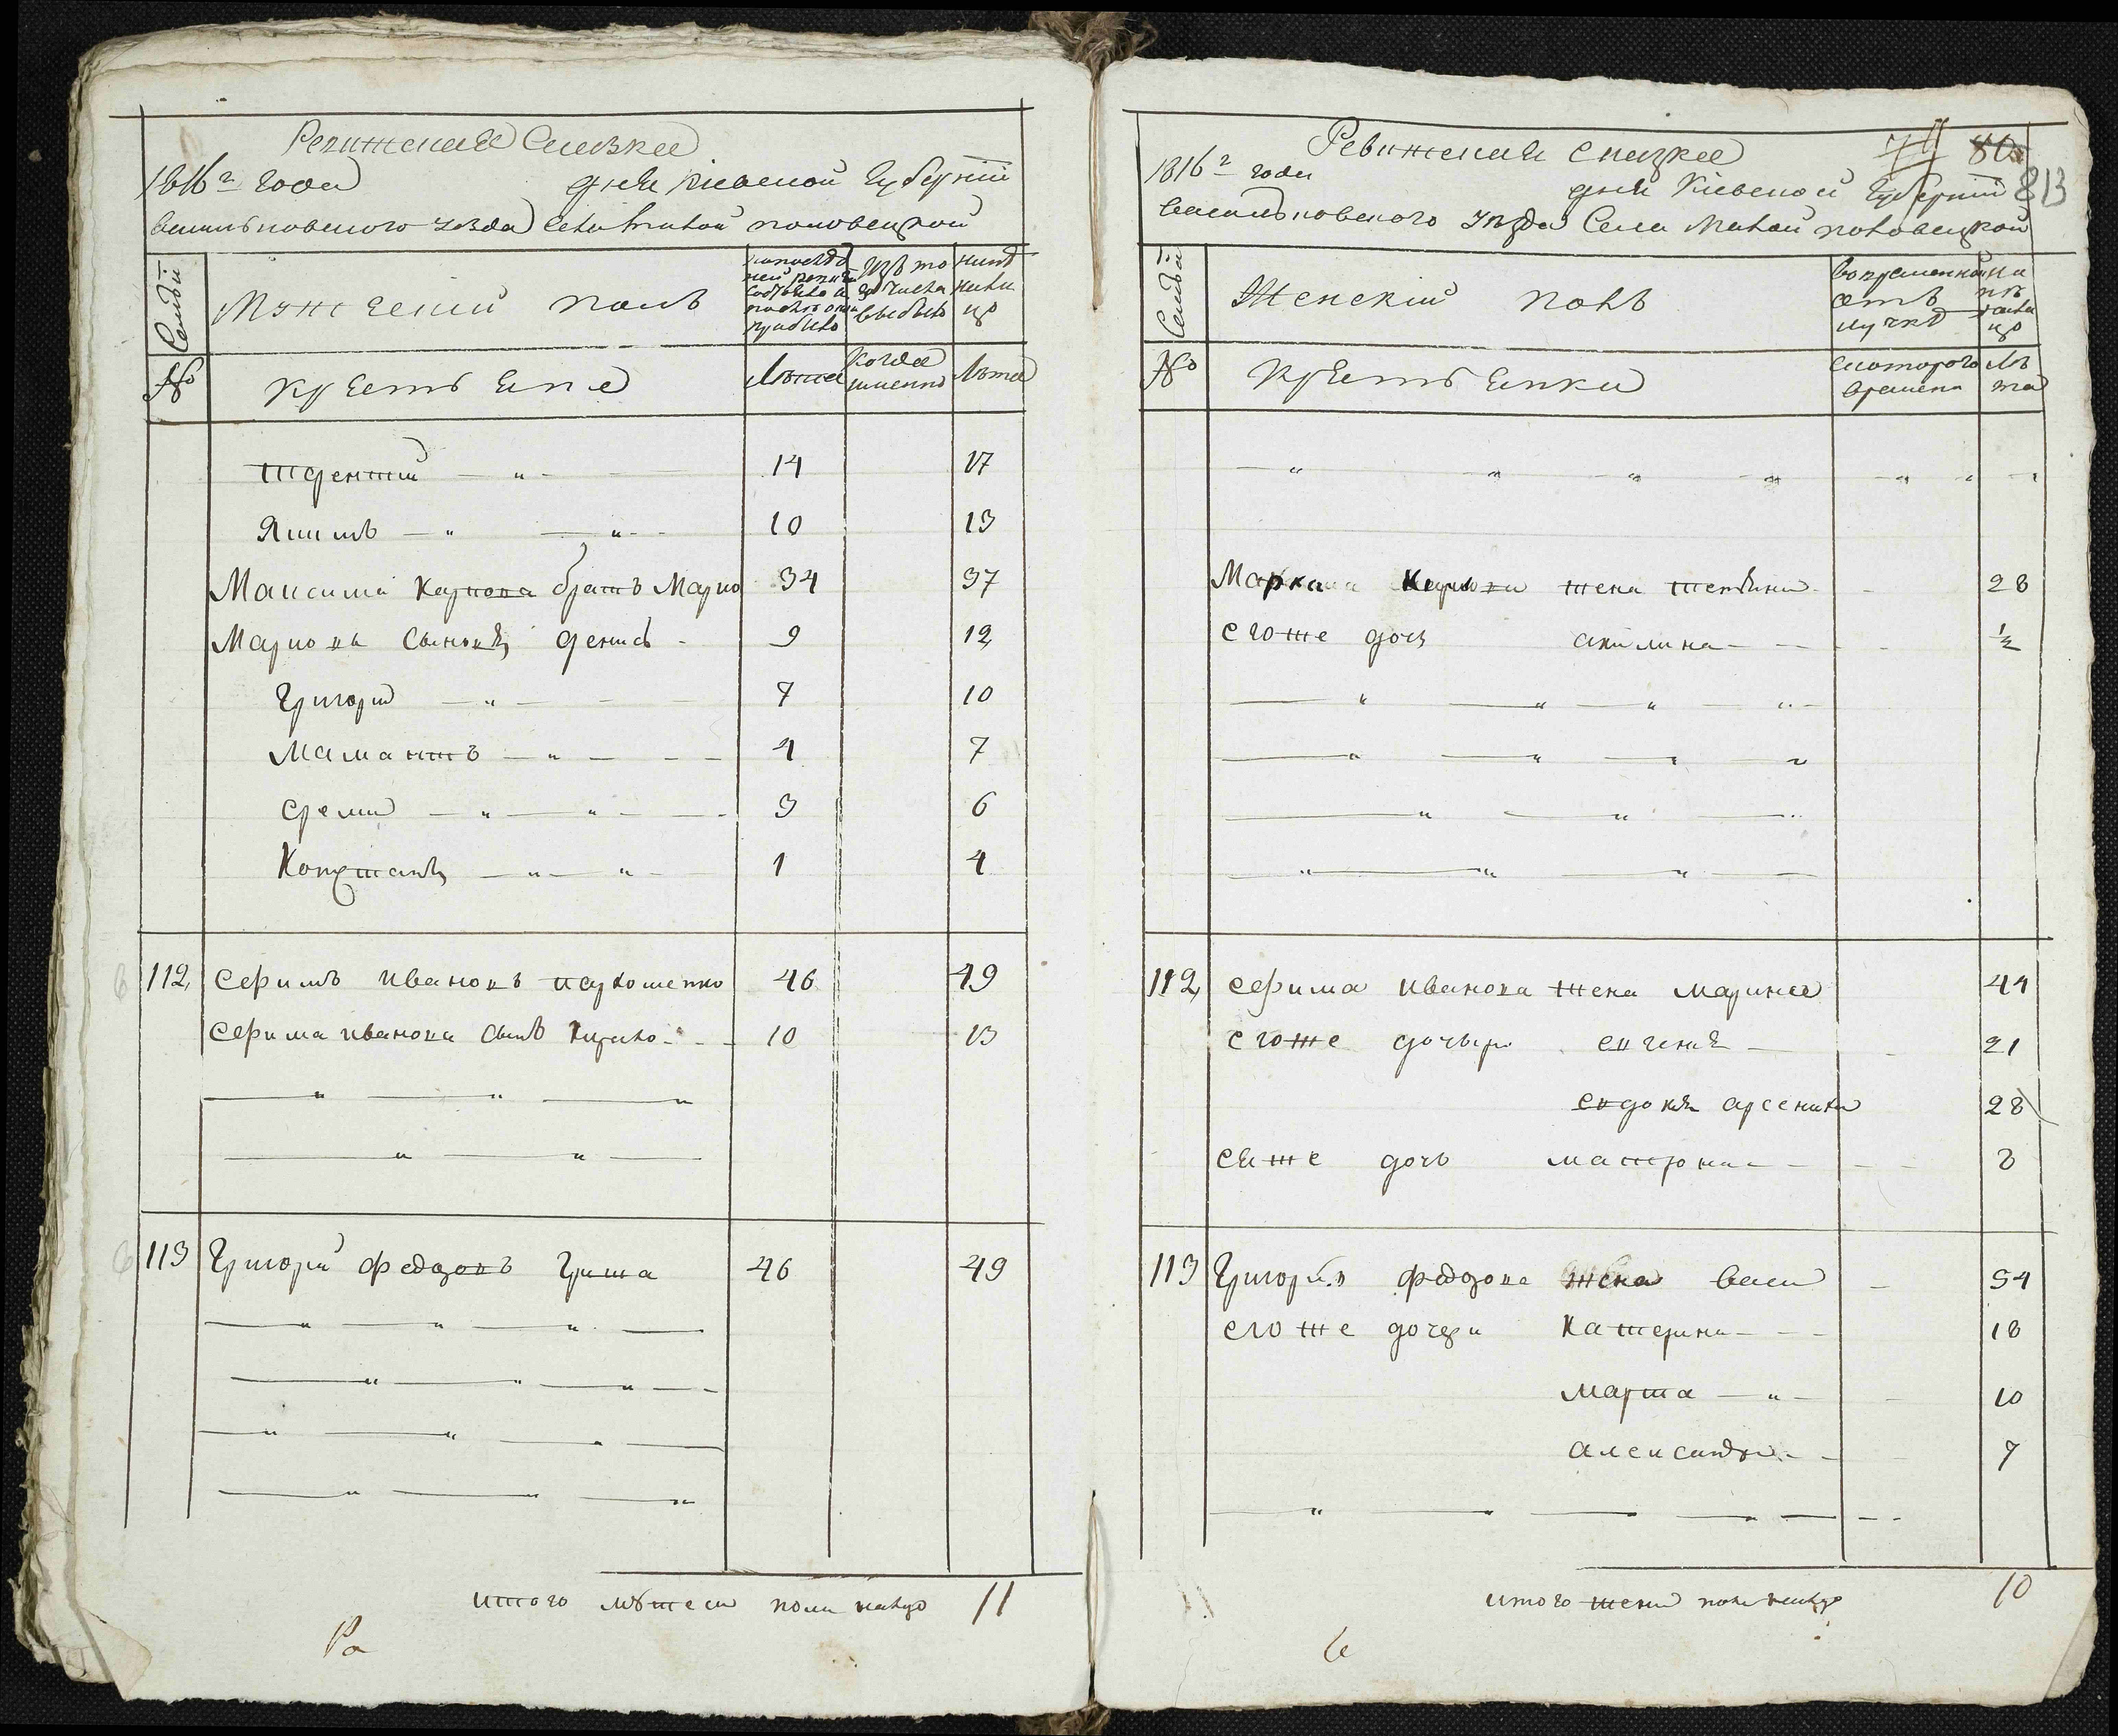 Ревижская Сказка
1816 г года дня Киевской Губернии
Васильковского уезда Села Малой половецкой
Семьи
Мужеский полъ
Изъ того числа выбыло
ныне на лицо
№
крестьяне
Лета
Когда именно
Лета
терентий — „ — 14 17
Якимъ — „ — „ 10 13
Максима Карпова братъ Марко 34 37
Маркова сыновя денисъ - 9 12
Григорий — „ — 7 10
Мамантъ — „ — 4 7
Ереми — „ — „ — 3 6
Конста — „ — „ — 1 4
112 Ефимъ Ивановъ 46 49
Ефима иванова сынъ Кирило 10 13
113 Григори Федоровъ Гриша 46 49
итого мужеска пола налицо 11
Ра
Ревижская сказка 80 813
1816 г года дня Киевской Губернии
Васильковского уезда Села Малой половецкой
Семьи
Женский полъ
Во временной отлучке
на лицо
№
Крестьянки
с которого времени
лета
Марка Карпова жена 28
егоже доч акилина ½
112 Ефима Иванова жена марина 44
егоже дочыри евгения — 21
евдокия 28
еяже дочь матрона 8
113 Григория Федорова жена васи 54
егоже дочери Катерина 18
марта — „ 10
александра 7
итого женска пола налицо 10